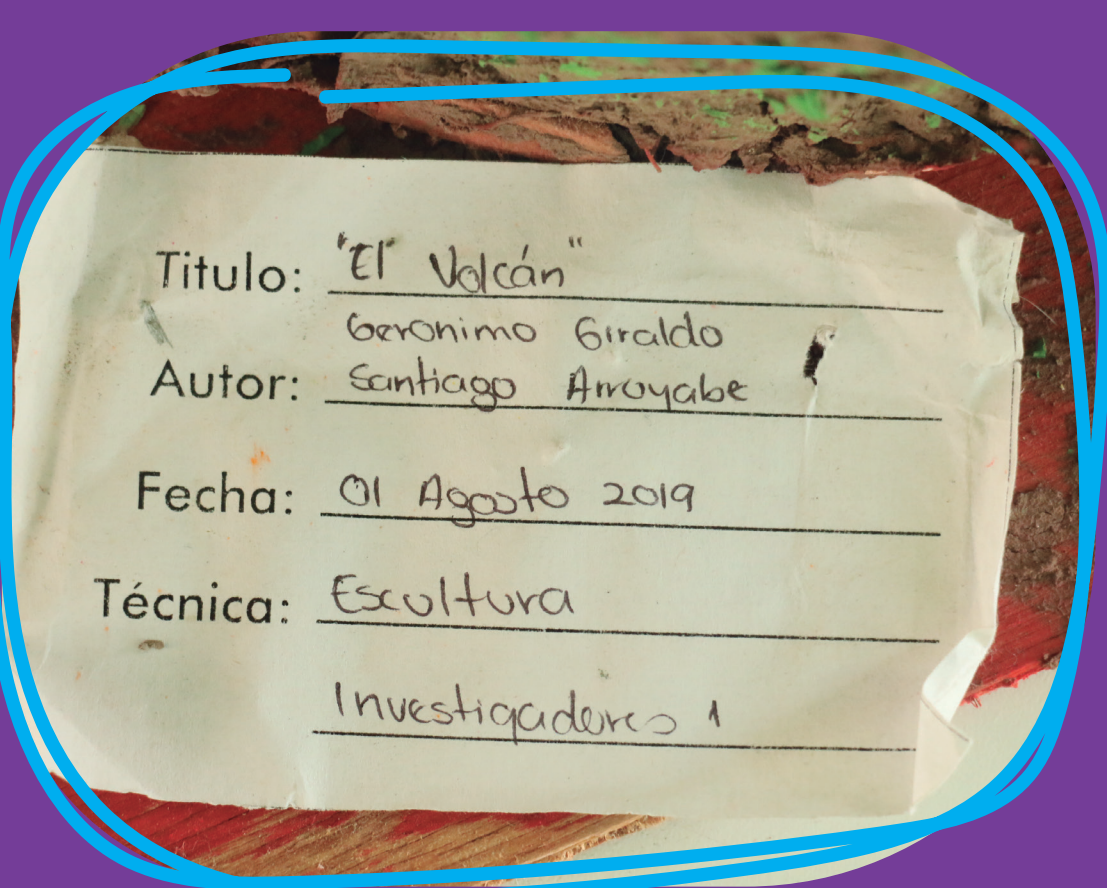 Titulo: "El Volcán"
Geronimo Giraldo
Autor: Santiago Arroyabe
Fecha: 01 Agosto 2019
Técnica: Escultura
Investigadores 1